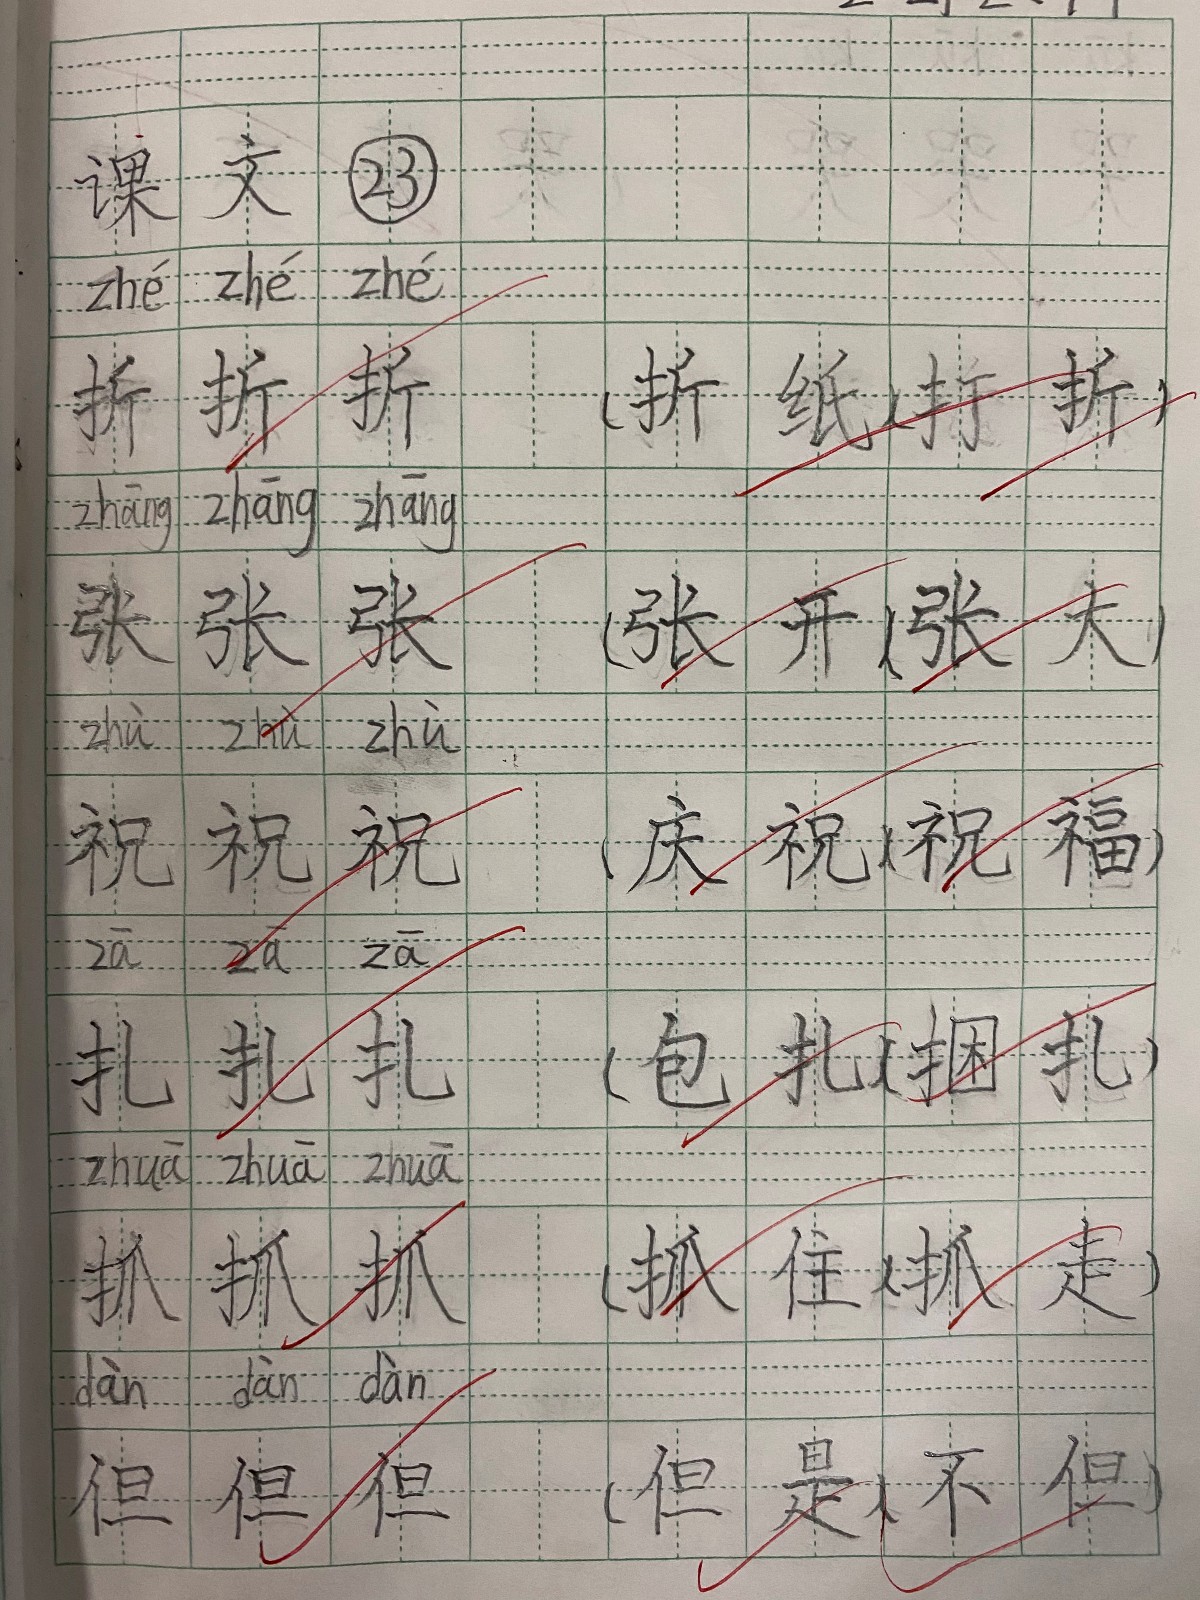 课文㉓
zhé zhé zhé
折折折 (折纸)(打折)
zhāng zhāng zhāng
张张张 (张开)(张大)
zhù zhù zhù
祝祝祝 (庆祝)(祝福)
zā zā zā
扎扎扎 (包扎)(捆扎)
zhuā zhuā zhuā
抓抓抓 (抓住)(抓走)
dàn dàn dàn
但但但 (但是)(不但)